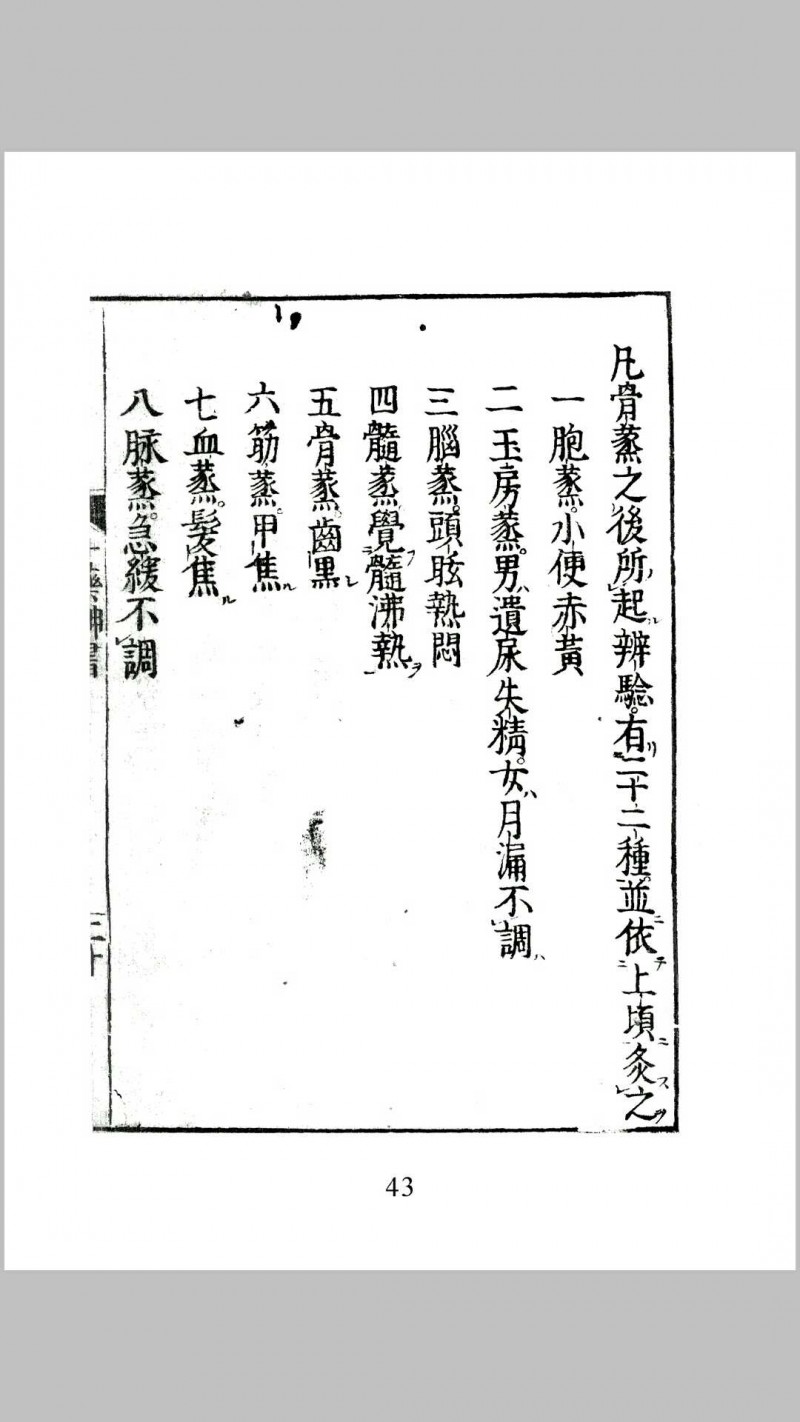 凡骨蒸之後所起辨驗有二十二種並依上項灸之
一胞蒸小便赤黃
二玉房蒸男遺尿失精女月漏不調
三腦蒸頭眩熱悶
四髓蒸覺髓沸熱
五骨蒸齒黑
六筋蒸甲焦
七血蒸髮焦
八脉蒸急緩不調
43